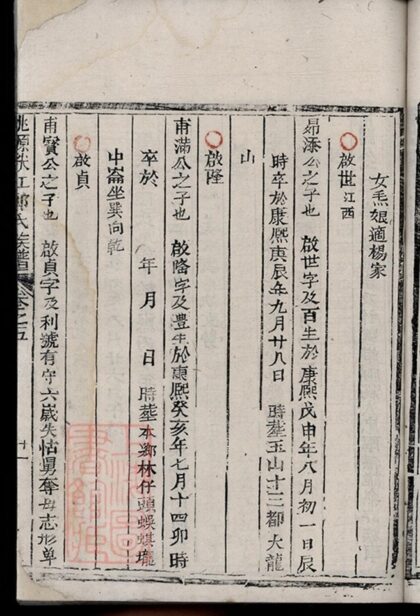 女𤆬娘適楊家
啟世江西
昴添公之子也 啟世字及百生於康熙戊申年八月初一日辰
時卒於康熙庚辰年九月廿八日 時葬玉山十三都大龍
山
啟隆
甫滿公之子也 啟隆字及豊生於康熙癸亥年七月十四卯時
卒於 年 月 日 時葬本鄉林仔頭蜈蜞壠
中崙坐巽向乾
啟貞
甫實公之子也 啟貞字及利號有守六歲失怙舅奪母志形單
桃源 江 氏族譜 卷之五 十